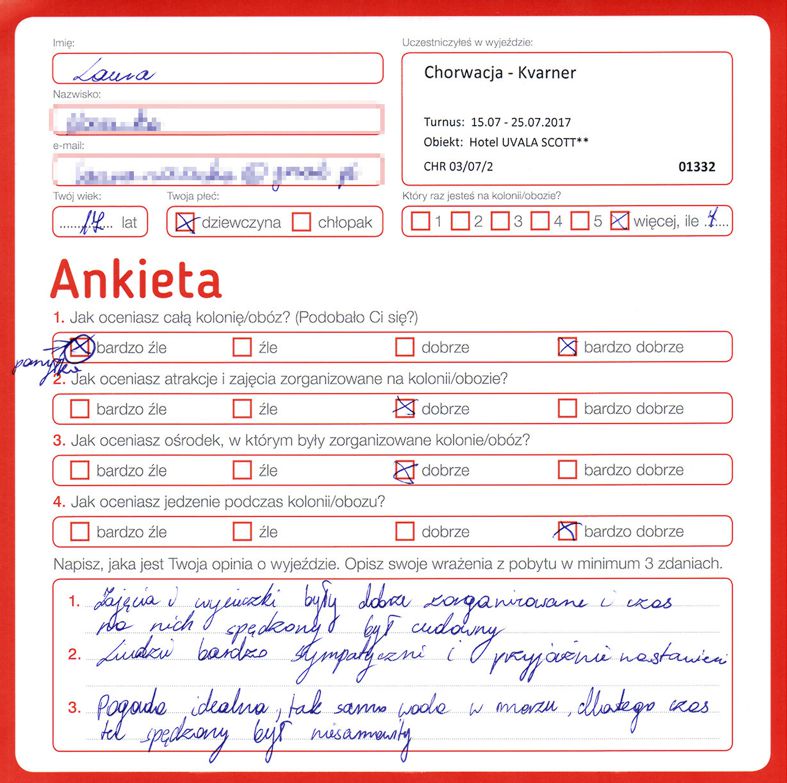 Imię:
Laura
Nazwisko:
e-mail:
Twój wiek:
17 lat
Twoja płeć:
dziewczyna chłopak
Uczestniczyłeś w wyjeździe:
Chorwacja - Kvarner
Turnus: 15.07 - 25.07.2017
Obiekt: Hotel UVALA SCOTT**
CHR 03/07/2 01332
Który raz jesteś na kolonii/obozie?
1 2 3 4 5 więcej, ile
Ankieta
1. Jak oceniasz całą kolonię/obóz? (Podobało Ci się?)
bardzo źle źle dobrze bardzo dobrze
pomyłka
2. Jak oceniasz atrakcje i zajęcia zorganizowane na kolonii/obozie?
bardzo źle źle dobrze bardzo dobrze
3. Jak oceniasz ośrodek, w którym były zorganizowane kolonie/obóz?
bardzo źle źle dobrze bardzo dobrze
4. Jak oceniasz jedzenie podczas kolonii/obozu?
bardzo źle źle dobrze bardzo dobrze
Napisz, jaka jest Twoja opinia o wyjeździe. Opisz swoje wrażenia z pobytu w minimum 3 zdaniach.
1. Zajęcia i wycieczki były dobrze zorganizowane i czas
na nich spędzony był cudowny
2. Ludzie bardzo sympatyczni i przyjaźnie nastawieni
3. Pogoda idealna, tak samo woda w morzu, dlatego czas
tu spędzony był niesamowity